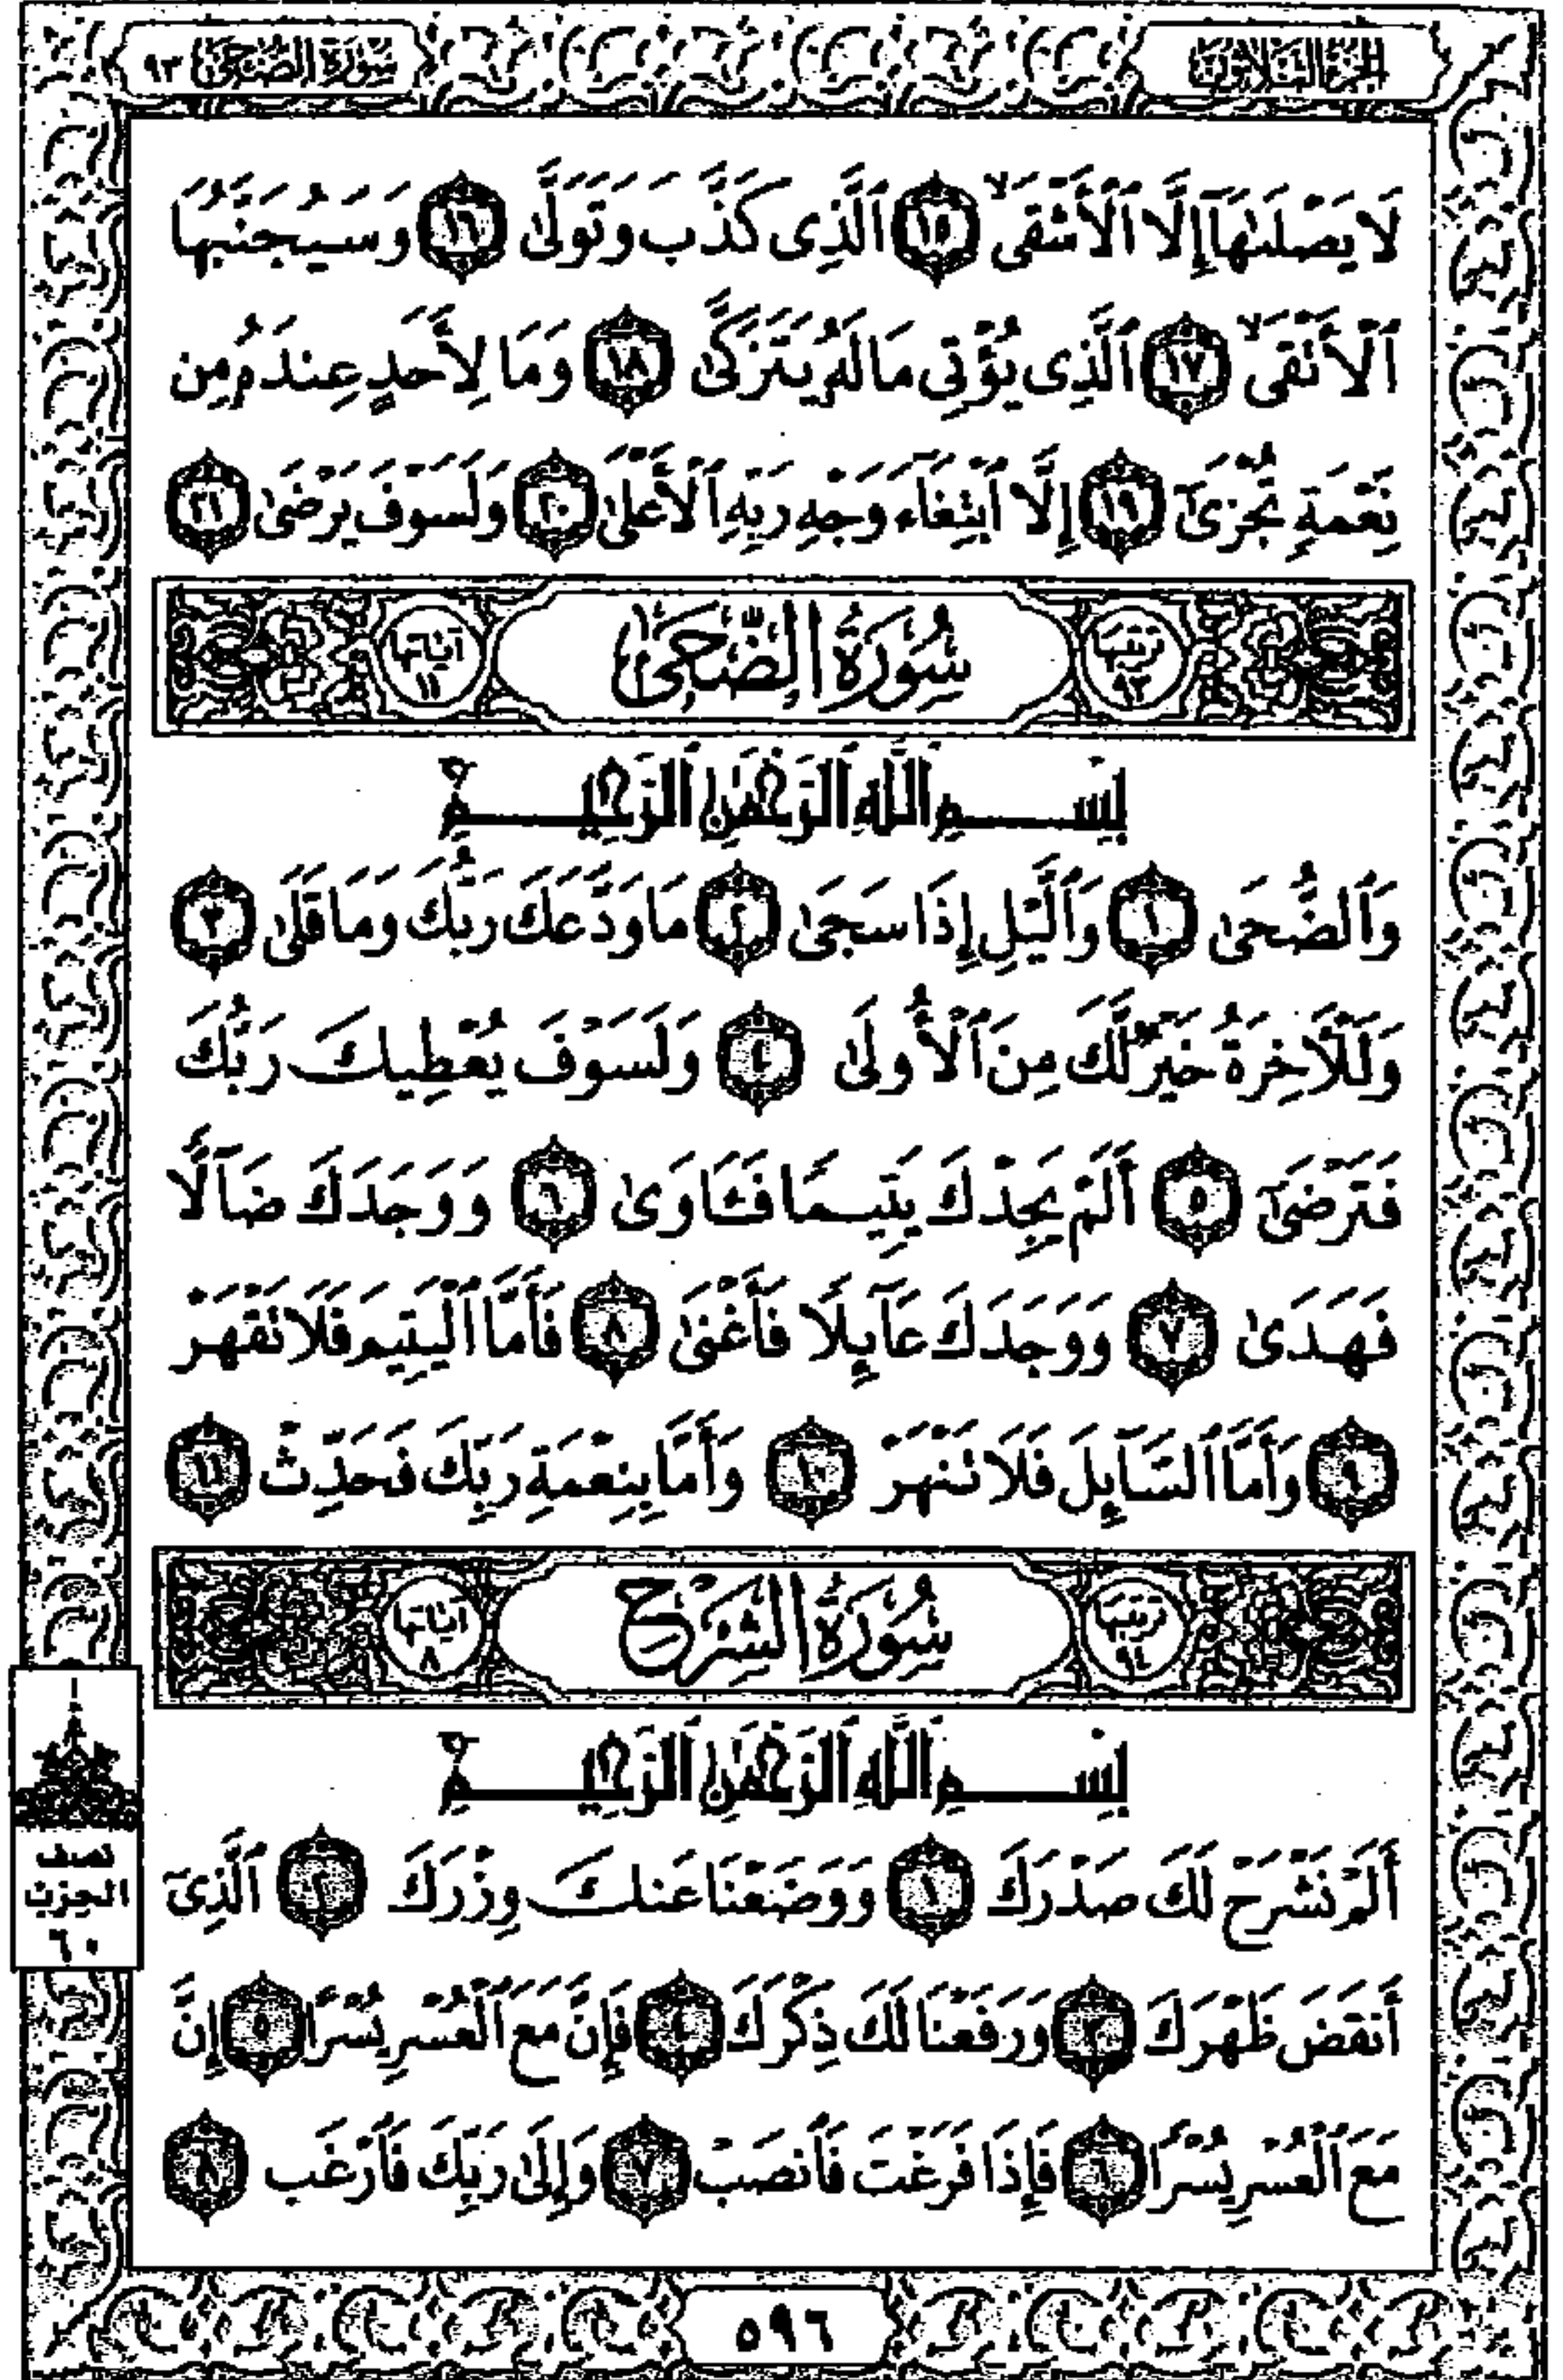 الجزء الثلاثون
سورة الضحى ٩٣
لَا يَصْلَىٰهَآ إِلَّا ٱلْأَشْقَىۙ ١٥ ٱلَّذِى كَذَّبَ وَتَوَلَّىٰ ١٦ وَسَيُجَنَّبُهَا
ٱلْأَتْقَىۙ ١٧ ٱلَّذِى يُؤْتِى مَالَهُۥ يَتَزَكَّىٰ ١٨ وَمَا لِأَحَدٍ عِندَهُۥ مِن
نِّعْمَةٍ تُجْزَىٰٓ ١٩ إِلَّا ٱبْتِغَآءَ وَجْهِ رَبِّهِ ٱلْأَعْلَىٰ ٢٠ وَلَسَوْفَ يَرْضَىٰ ٢١
ترتيبها ٩٣ سُورَةُ الضُّحَىٰ آياتها ١١
بِسْمِ ٱللَّهِ ٱلرَّحْمَٰنِ ٱلرَّحِيمِ
وَٱلضُّحَىٰ ١ وَٱلَّيْلِ إِذَا سَجَىٰ ٢ مَا وَدَّعَكَ رَبُّكَ وَمَا قَلَىٰ ٣
وَلَلْأَخِرَةُ خَيْرٌ لَّكَ مِنَ ٱلْأُولَىٰ ٤ وَلَسَوْفَ يُعْطِيكَ رَبُّكَ
فَتَرْضَىٰٓ ٥ أَلَمْ يَجِدْكَ يَتِيمًا فَـَٔاوَىٰ ٦ وَوَجَدَكَ ضَآلًّا
فَهَدَىٰ ٧ وَوَجَدَكَ عَآئِلًا فَأَغْنَىٰ ٨ فَأَمَّا ٱلْيَتِيمَ فَلَا تَقْهَرْ
٩ وَأَمَّا ٱلسَّآئِلَ فَلَا تَنْهَرْ ١٠ وَأَمَّا بِنِعْمَةِ رَبِّكَ فَحَدِّثْ ١١
ترتيبها ٩٤ سُورَةُ الشَّرْحِ آياتها ٨
بِسْمِ ٱللَّهِ ٱلرَّحْمَٰنِ ٱلرَّحِيمِ
أَلَمْ نَشْرَحْ لَكَ صَدْرَكَ ١ وَوَضَعْنَا عَنكَ وِزْرَكَ ٢ ٱلَّذِىٓ
أَنقَضَ ظَهْرَكَ ٣ وَرَفَعْنَا لَكَ ذِكْرَكَ ٤ فَإِنَّ مَعَ ٱلْعُسْرِ يُسْرًا ٥ إِنَّ
مَعَ ٱلْعُسْرِ يُسْرًا ٦ فَإِذَا فَرَغْتَ فَٱنصَبْ ٧ وَإِلَىٰ رَبِّكَ فَٱرْغَب ٨
نصف
الحزب
٦٠
٥٩٦